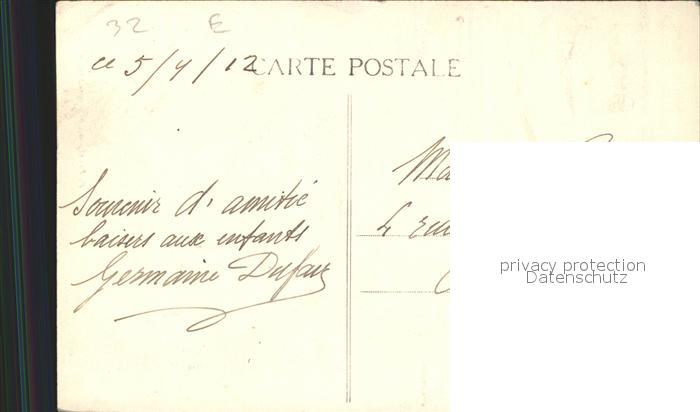 32 E
ce 5/4/12 CARTE POSTALE
Souvenir d'amitié
baisers aux enfants
Germaine
4
privacy protection
Datenschutz